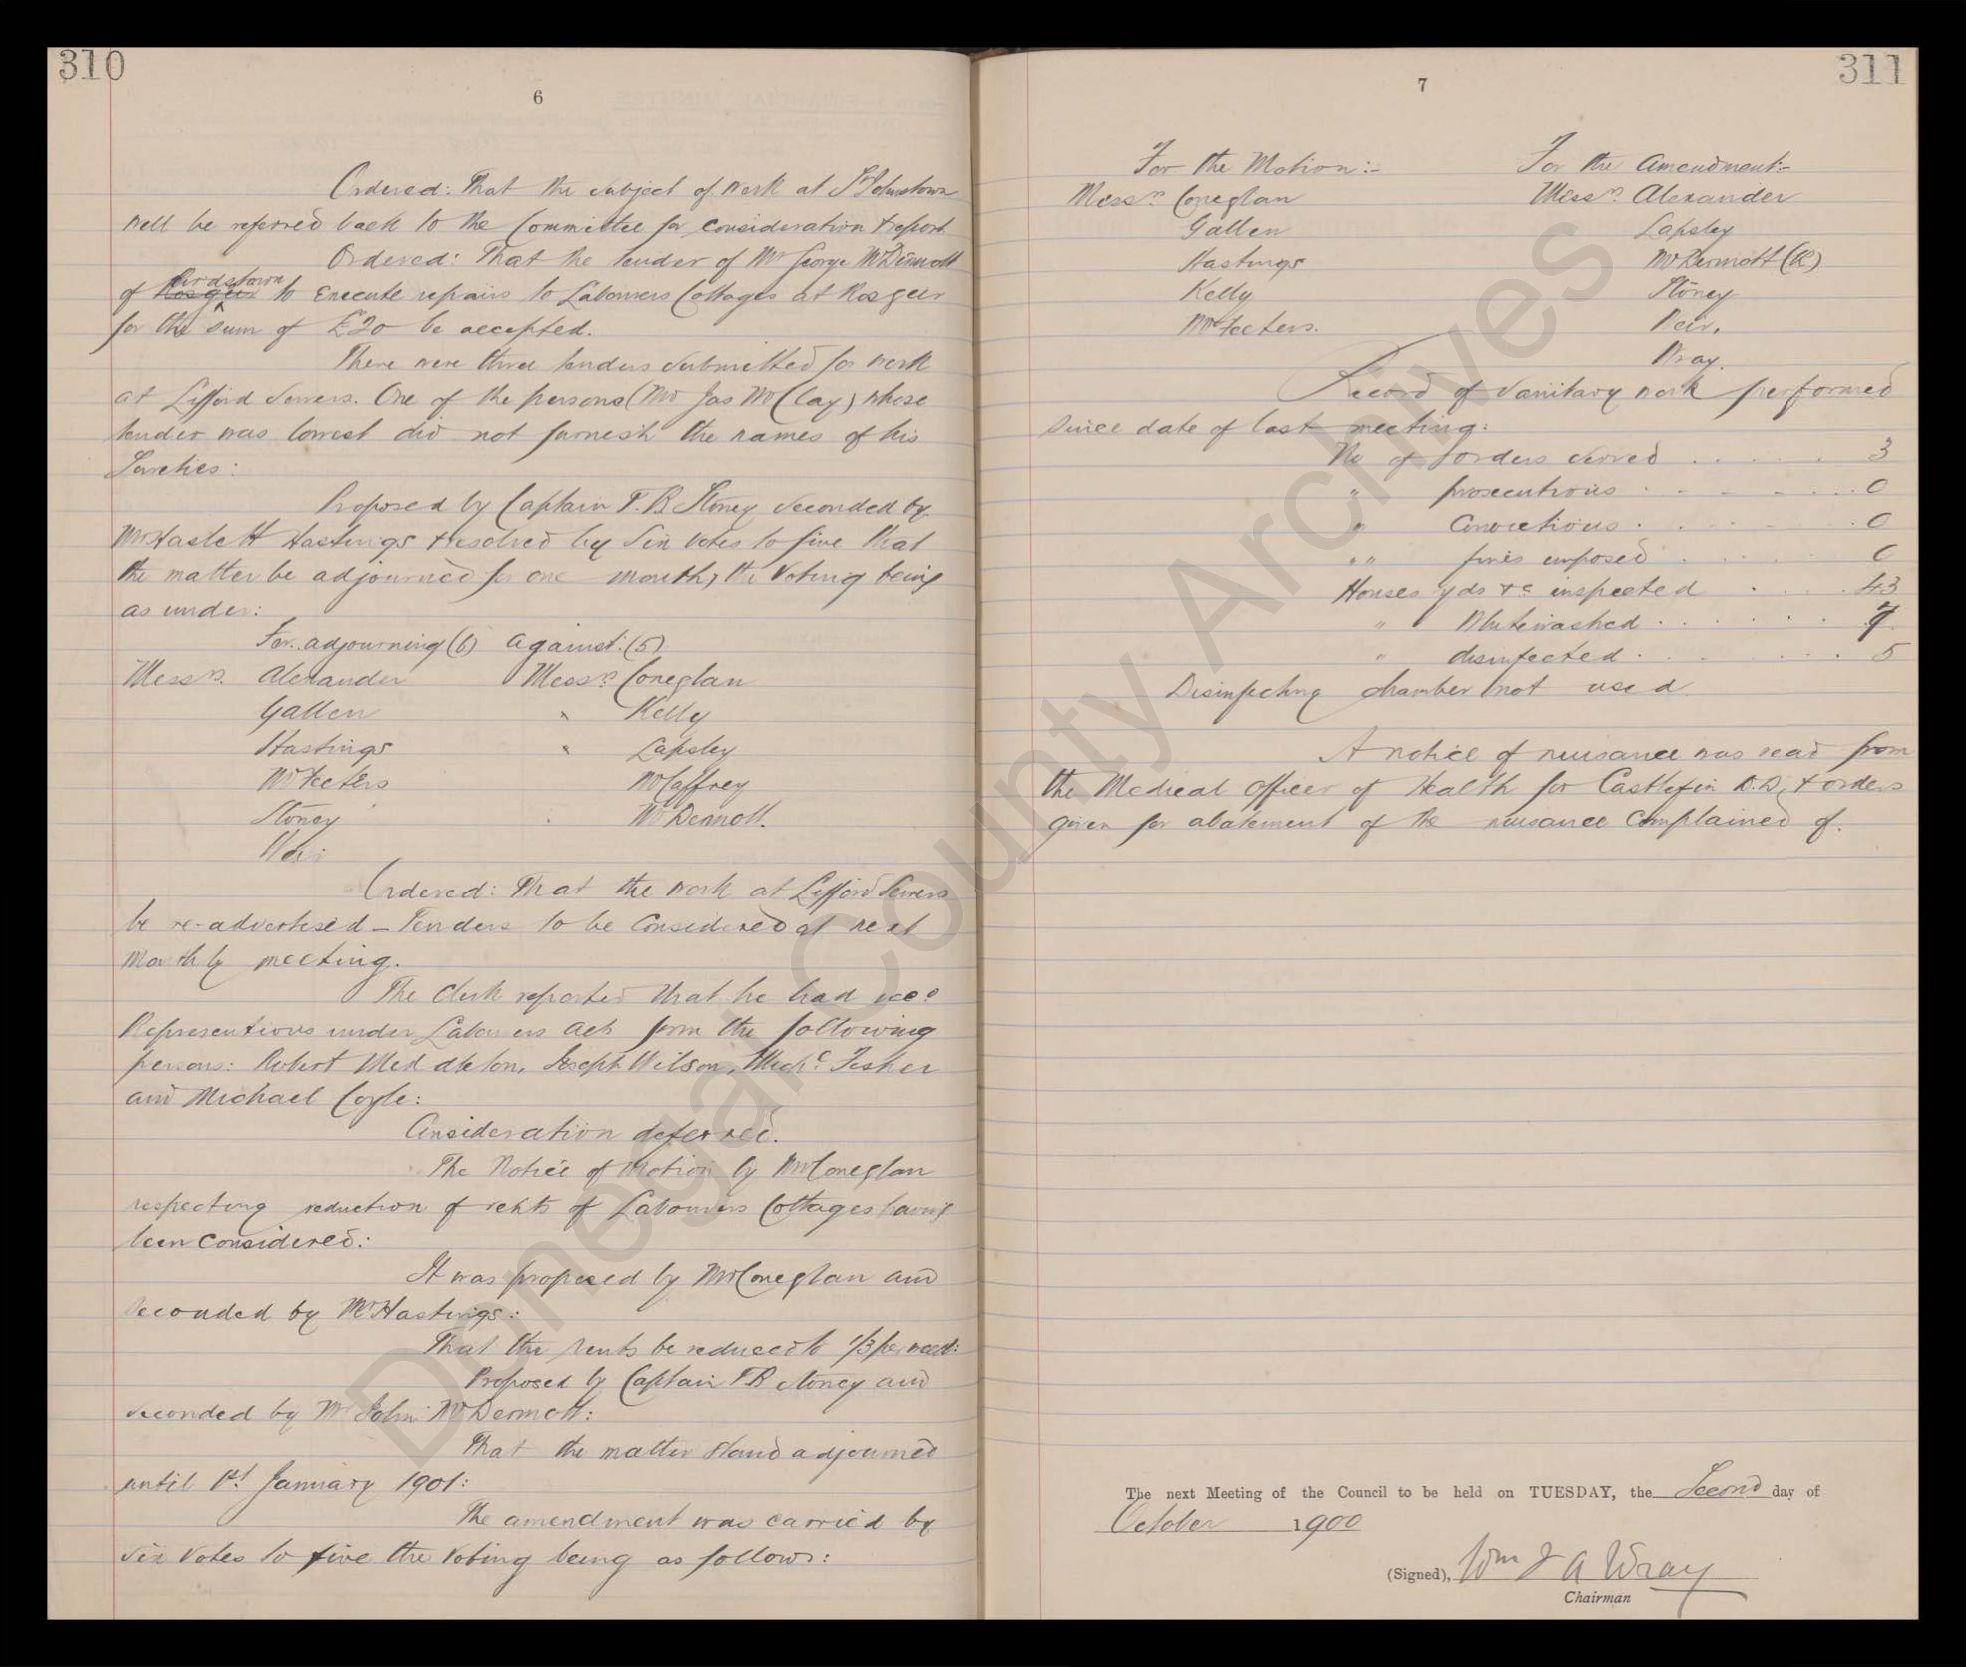 310
6
Ordered: That the subject of work at St Johnstown
well be referred back to the Committee for consideration & report
Ordered: That the tender of Mr George McDermott
of Rosgeir to execute repairs to Labourers Cottages at Rosgeir
for the sum of £20 be accepted.
There were three tenders submitted for work
at Lifford Sewers. One of the persons (Mr Jas McClay) whose
tender was lowest did not furnish the names of his
Sureties:
Proposed by Captain T.B. Stoney seconded by
Mr Haslett Hastings & resolved by six votes to five that
the matter be adjourned for one month, the voting being
as under:
For adjourning (6) Against: (5)
Messrs. Alexander Messrs. Coneglan
Gallen " Kelly
Hastings " Lapsley
McFeeters McCaffrey
Stoney McDermott.
Weir
Ordered: That the work at Lifford Sewers
be re-advertised – Tenders to be considered at next
monthly meeting.
The Clerk reported that he had recd
Representations under Labourers Acts from the following
persons: Robert Middleton, Joseph Wilson, Michl Fisher
and Michael Coyle:
Consideration deferred.
The Notice of Motion by Mr Coneglan
respecting reduction of rents of Labourers Cottages having
been considered:
It was proposed by Mr Coneglan and
seconded by Mr Hastings:
That the rents be reduced to 1/3 per week:
Proposed by Captain T B Stoney and
seconded by Mr John McDermott:
That the matter stand adjourned
until 1st January 1901:
The amendment was carried by
six votes to five the voting being as follows:
311
7
For the Motion:- For the Amendment:-
Messrs. Coneglan Messrs. Alexander
Gallen Lapsley
Hastings McDermott (R)
Kelly Stoney
McFeeters. Weir.
Wray.
Record of Sanitary work performed
since date of last meeting:
No of orders served 3
" prosecutions 0
" Convictions 0
" " fines imposed 0
Houses yds &c inspected 43
" Whitewashed 7
" disinfected 5
Disinfecting chamber not used
A notice of nuisance was read from
the Medical Officer of Health for Castlefin D.D. & orders
given for abatement of the nuisance complained of.
The next Meeting of the Council to be held on TUESDAY, the Second day of
October 1900
(Signed), Wm J A Wray
Chairman
Donegal County Archives